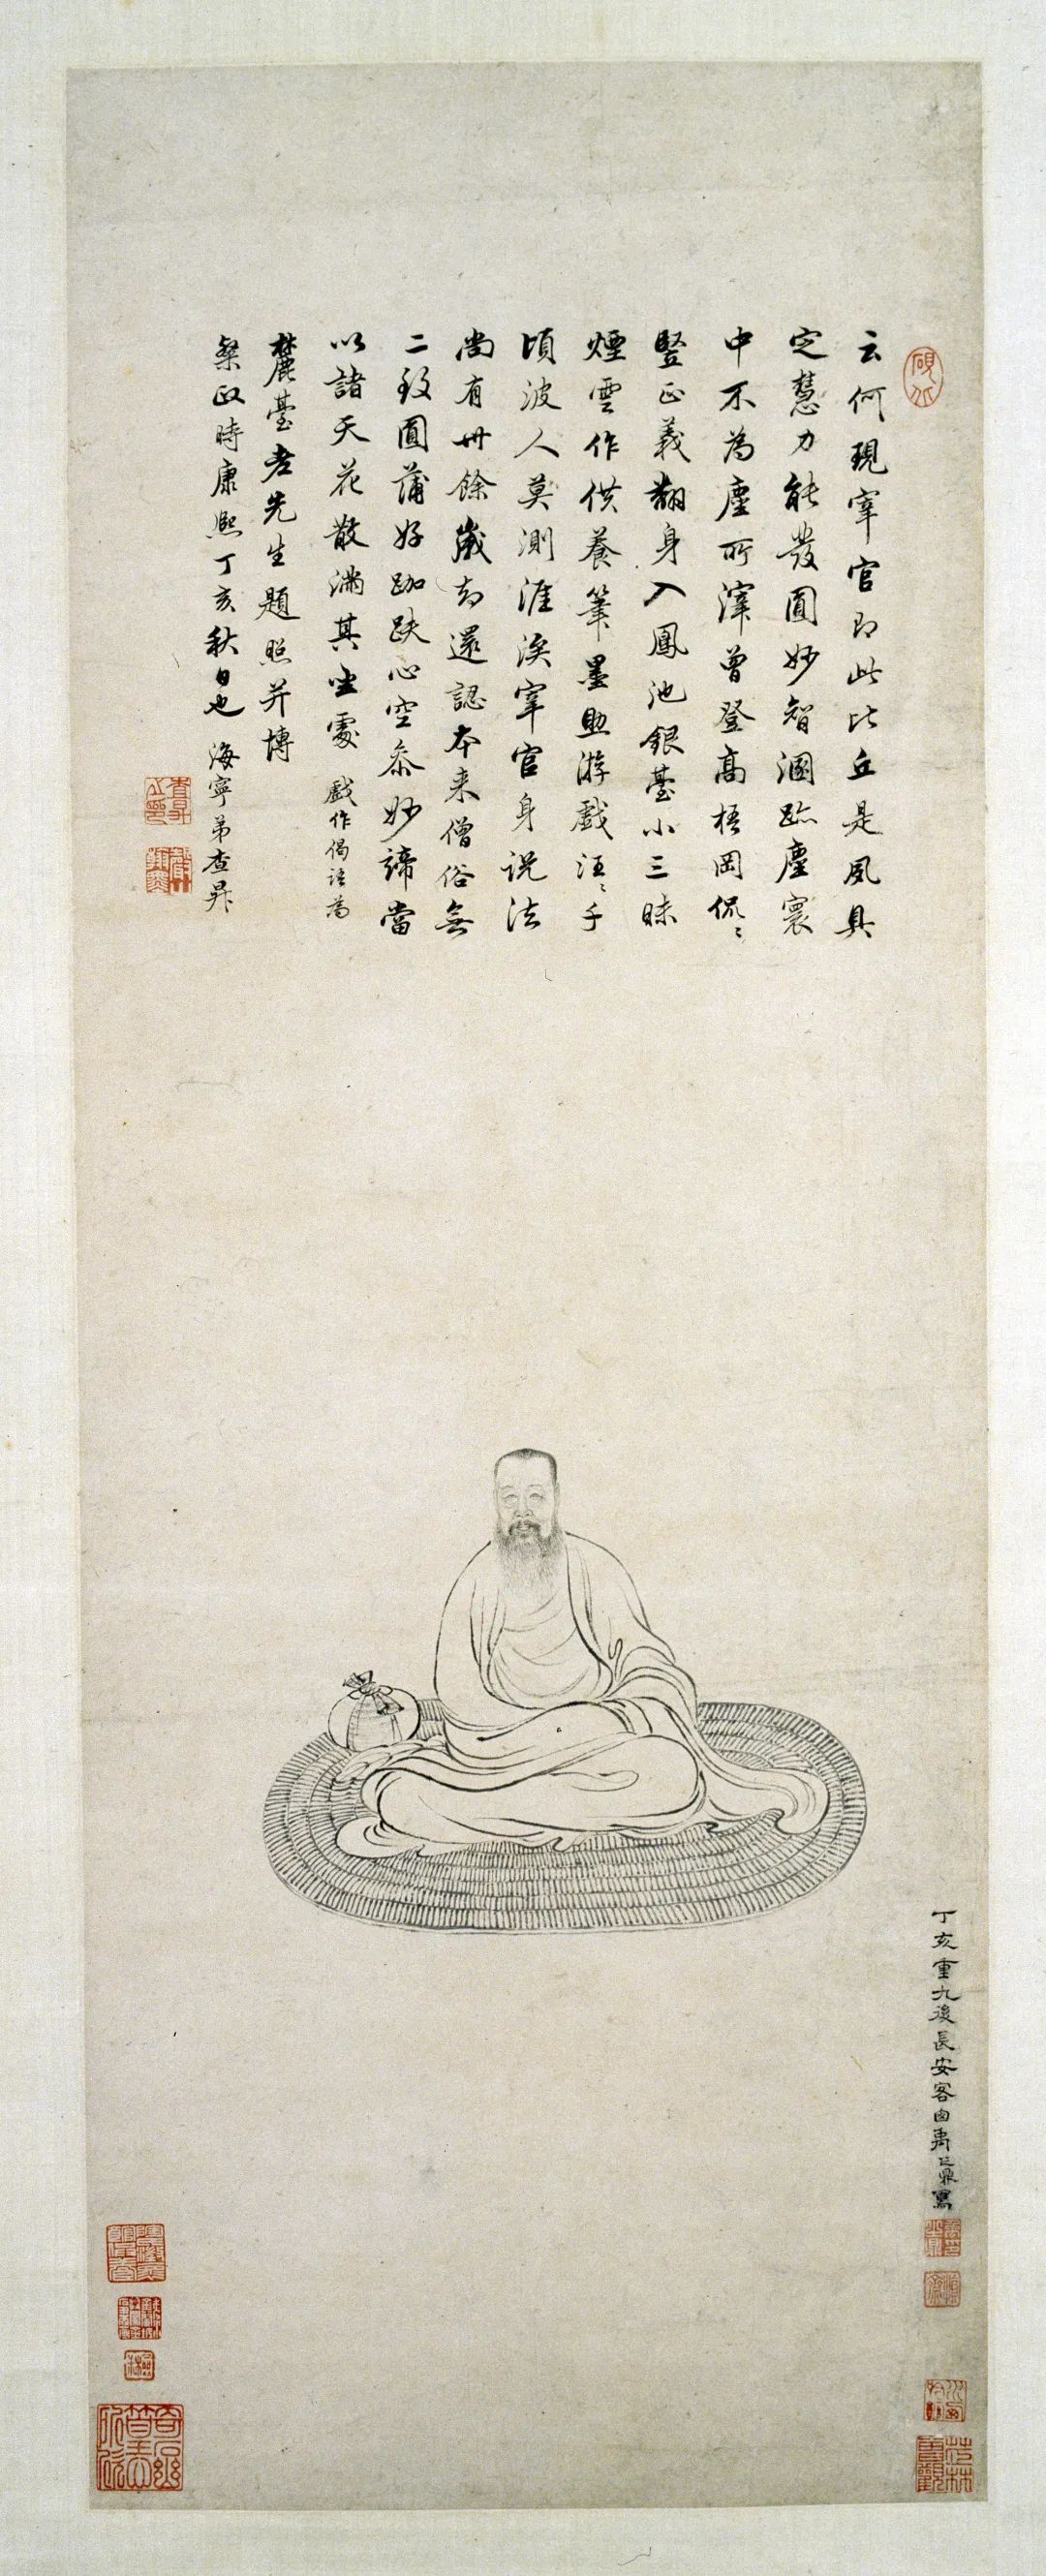 云何現宰官即此比丘是夙具
定慧力能發圓妙智溷跡塵寰
中不為塵所滓曾登高梧岡侃〻
豎正義翻身入鳳池銀臺小三昧
煙雲作供養筆墨助游戲汪〻千
頃波人莫測涯涘宰官身説法
尚有卅餘歲却還認本来僧俗無
二致圓蒲好跏趺心空叅妙諦當
以諸天花散滿其坐處 戲作偈語為
麓臺老先生題照并博
粲政時康熙丁亥秋日也 海寧弟查昇
丁亥重九後長安客囱禹之鼎寫